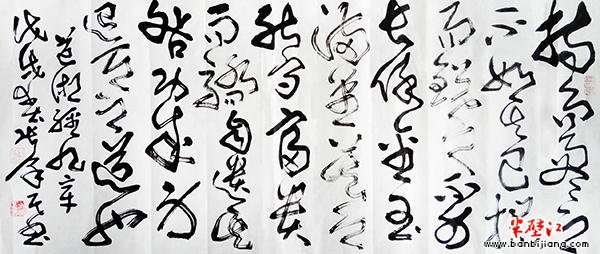 持而盈之
不如其已揣
而銳之不可
長保金玉
滿堂莫之
能守富貴
而驕自遺其
咎功成身
退天之道也
道德經九章
戊戌
半壁江
www.banbijiang.com